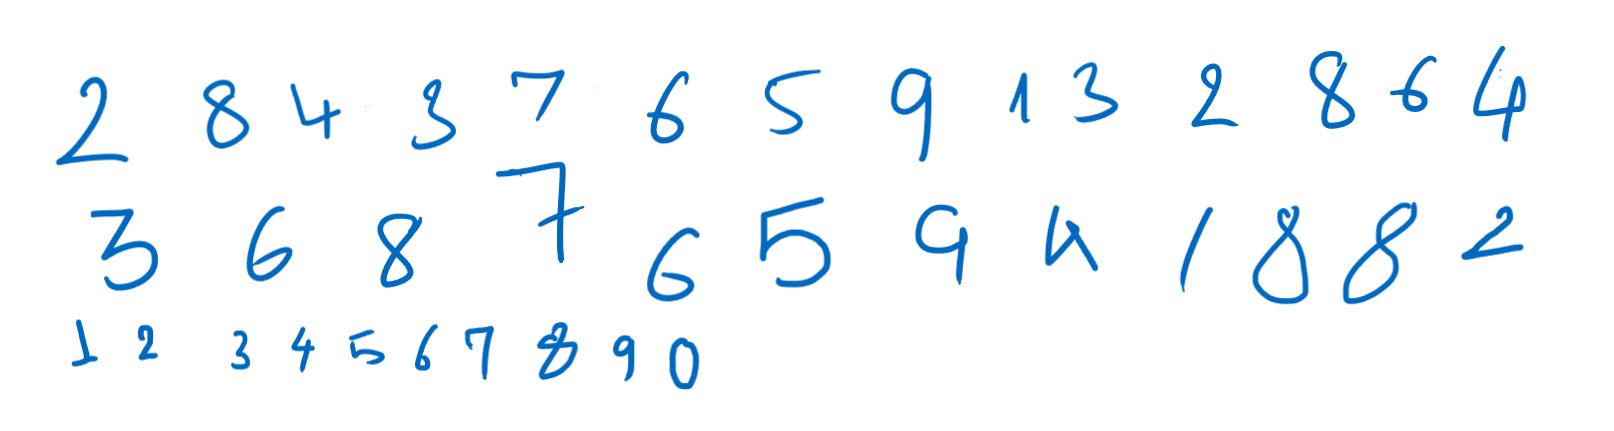 2 8 4 3 7 6 5 9 1 3 2 8 6 4
3 6 8 7 6 5 9 4 1 8 8 2
1 2 3 4 5 6 7 8 9 0